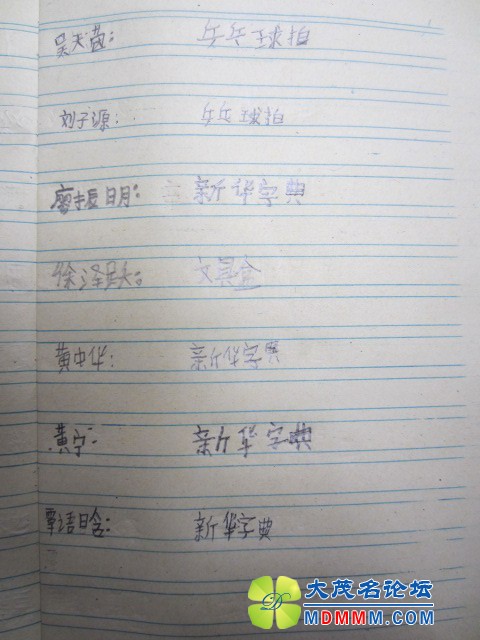 吴天茵： 乒乓球拍
刘子源： 乒乓球拍
廖振明： 新华字典
徐泽 文具盒
黄中华： 新华字典
黄宁 新华字典
新华字典
大茂名论坛
MDMMM.COM